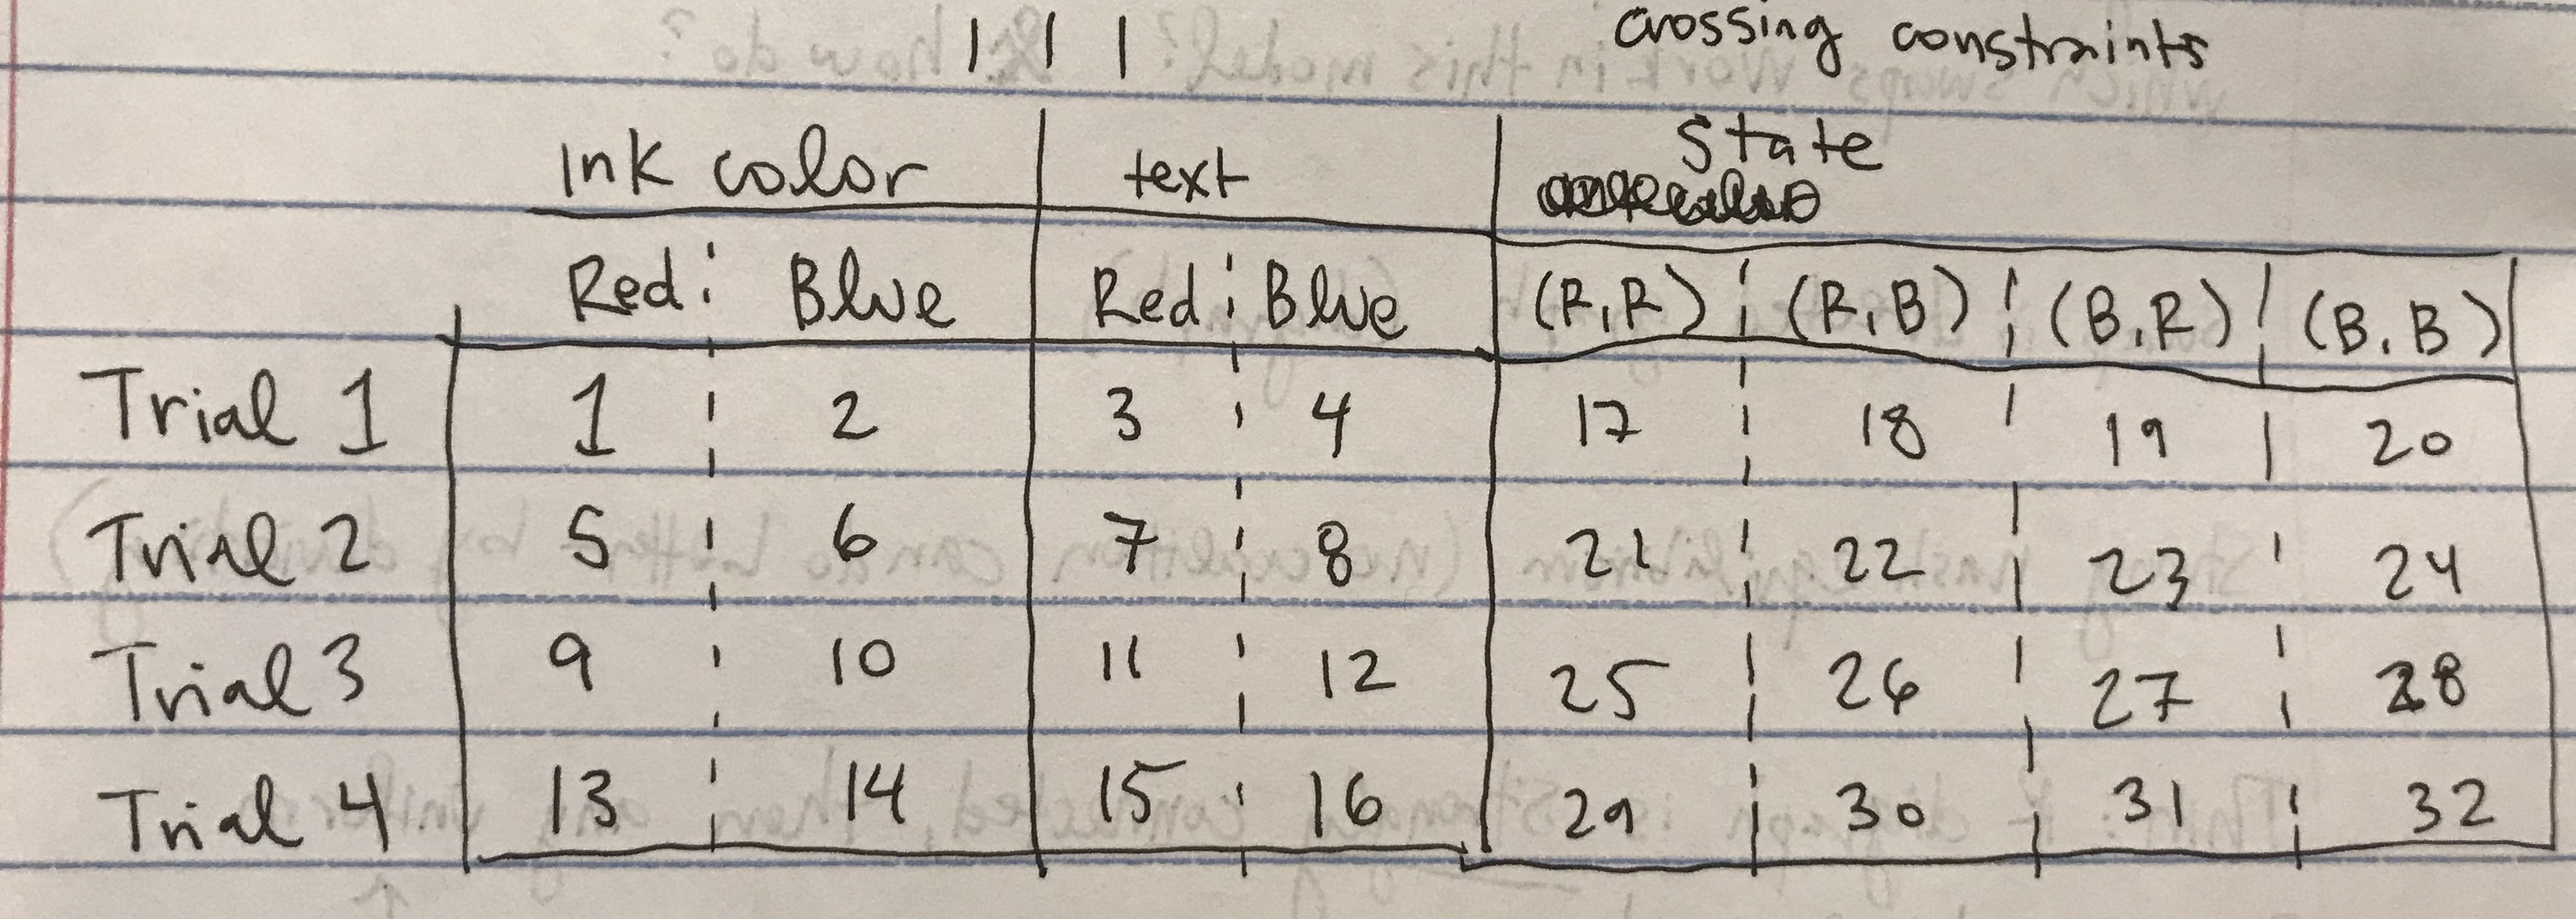 | | |
crossing constraints
Ink color text State
Red Blue Red Blue (R,R) (R,B) (B,R) (B,B)
Trial 1 1 2 3 4 17 18 19 20
Trial 2 5 6 7 8 21 22 23 24
Trial 3 9 10 11 12 25 26 27 28
Trial 4 13 14 15 16 29 30 31 32